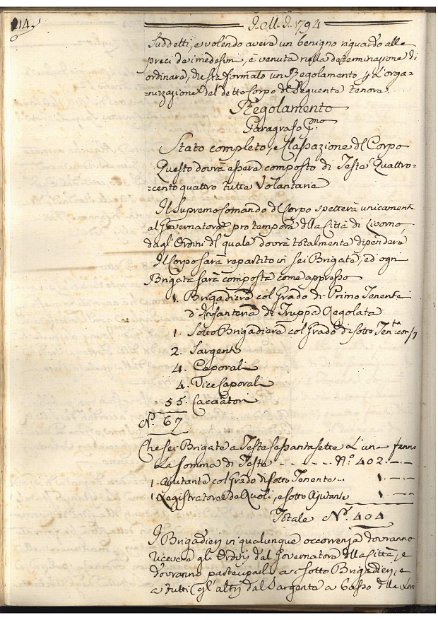 114.
A. M. D. 1794
Suddetti, e volendo avere un benigno riguardo alle
preci dei medesimi, è venuta nella determinazione di
ordinare, che sia formato un Regolamento p. l'orga-
nizzazione del detto Corpo del seguente tenore.
Regolamento
Paragrafo P.mo
Stato completo, e Classazione del Corpo
Questo dovrà essere composto di Teste Quattro-
cento quattro tutte Volontarie
Il Supremo Comando del Corpo spetterà unicament.
al Governatore pro tempore della Città di Livorno
dagl'Ordini del quale dovrà totalmente dipendere
Il Corpo sarà repartito in sei Brigate, ed ogni
Brigata sarà composta come appresso
1. Brigadiere col Grado di Primo Tenente
d'Infanteria di Truppa Regolata
1. Sotto Brigadiere col Grado di Sotto Ten.te
2. Sargenti
4. Caporali
4. Vice Caporali
55. Cacciatori
N.° 67
Che sei Brigate a Teste sessantasette l'una fanno
la somma di Teste N.° 402.
1. Aiutante col Grado di Sotto Tenente 1.
1. Registratore de Ruoli, e sotto Aiutante 1.
Totale N.° 404
I Brigadieri in qualunque occorrenza dovranno
ricevere gl'Ordini dal Governatore della Città, e
dovranno parteciparli a i Sotto Brigadieri, e
a tutti gl'altri dal Sargente a basso della